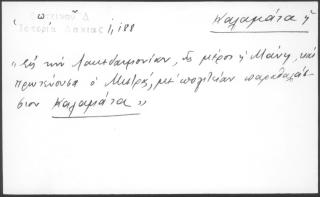 Φωτεινού Δ
Ἱστορία Δακίας
I, 188
Καλαμάτα ἡ
"Εἰς τὴν Λακεδαιμονίαν, ἧς μέρος ἡ Μάνη, καὶ
πρωτεύουσα ὁ Μιζηρᾶς, μὲ πολιτείαν παραθαλάσ-
σιον Καλαμάτα"